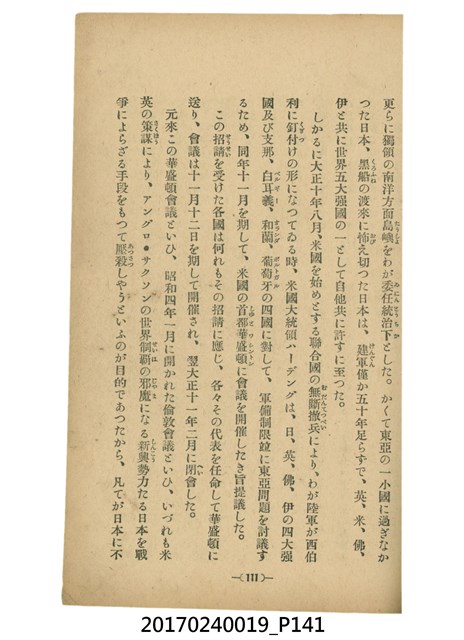 更らに獨領の南洋方面島嶼をわが委任統治下とした。かくて東亞の一小國に過ぎなか
つた日本、黑船の渡來に怖え切つた日本は、建軍僅か五十年足らずで、英、米、佛、
伊と共に世界五大强國の一として自他共に許すに至つた。
しかるに大正十年八月、米國を始めとする聯合國の無斷撤兵により、わが陸軍が西伯
利に釘付けの形になつてゐる時、米國大統領ハーデングは、日、英、佛、伊の四大强
國及び支那、白耳義、和蘭、葡萄牙の四國に對して、軍備制限竝に東亞問題を討議す
るため、同年十一月を期して、米國の首都華盛頓に會議を開催したき旨提議した。
この招請を受けた各國は何れもその招請に應じ、各々その代表を任命して華盛頓に
送り、會議は十一月十二日を期して開催され、翌大正十一年二月に閉會した。
元來この華盛頓會議といひ、昭和四年一月に開かれた倫敦會議といひ、いづれも米
英の策謀により、アングロ・サクソンの世界制覇の邪魔になる新興勢力たる日本を戰
爭によらざる手段をもつて壓殺しやうといふのが目的であつたから、凡てが日本に不
—( 111 )—
20170240019_P141